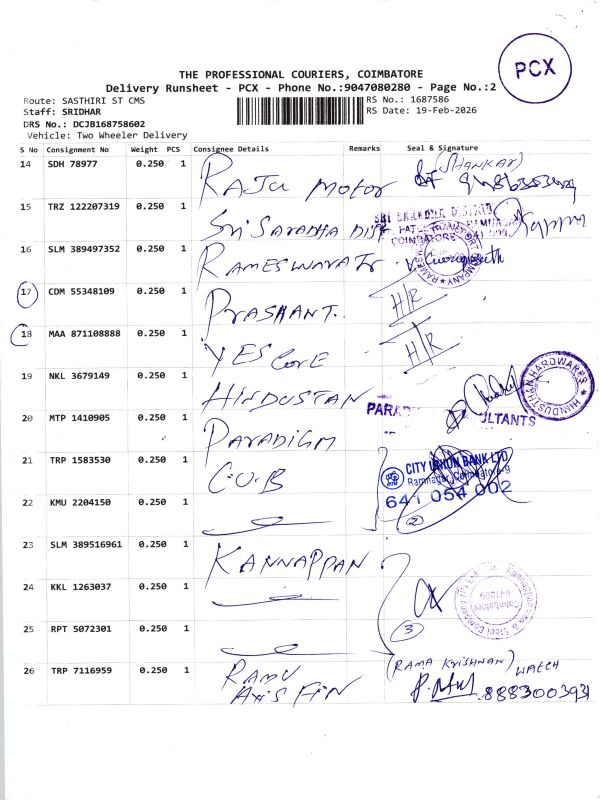 PCX
THE PROFESSIONAL COURIERS, COIMBATORE
Delivery Runsheet - PCX - Phone No.:9047080280 - Page No.:2
Route: SASTHIRI ST CMS
RS No.: 1687586
Staff: SRIDHAR
RS Date: 19-Feb-2026
DRS No.: DCJB168758602
Vehicle: Two Wheeler Delivery
S No Consignment No Weight PCS Consignee Details Remarks Seal & Signature
14 SDH 78977 0.250 1 RAJU MOTOR (SHANKAR)
15 TRZ 122207319 0.250 1 Sri SARADHA DIST
COIMBATORE
16 SLM 389497352 0.250 1 RAMESWARA Tr
17 CDM 55348109 0.250 1 PRASHANT. H/R
18 MAA 871108888 0.250 1 YES CORE H/R
19 NKL 3679149 0.250 1 HINDUSTAN
HINDUSTHAN HARDWARES
20 MTP 1410905 0.250 1 PARADIGM
ULTANTS
21 TRP 1583530 0.250 1 C.U.B
CITY UNION BANK LTD
Ramnagar, Coimbatore-9
641 054 002
22 KMU 2204150 0.250 1
2
23 SLM 389516961 0.250 1 KANNAPPAN
24 KKL 1263037 0.250 1
25 RPT 5072301 0.250 1
3
26 TRP 7116959 0.250 1 RAMU (RAMA KRISHNAN) WATCH
AXIS FIN